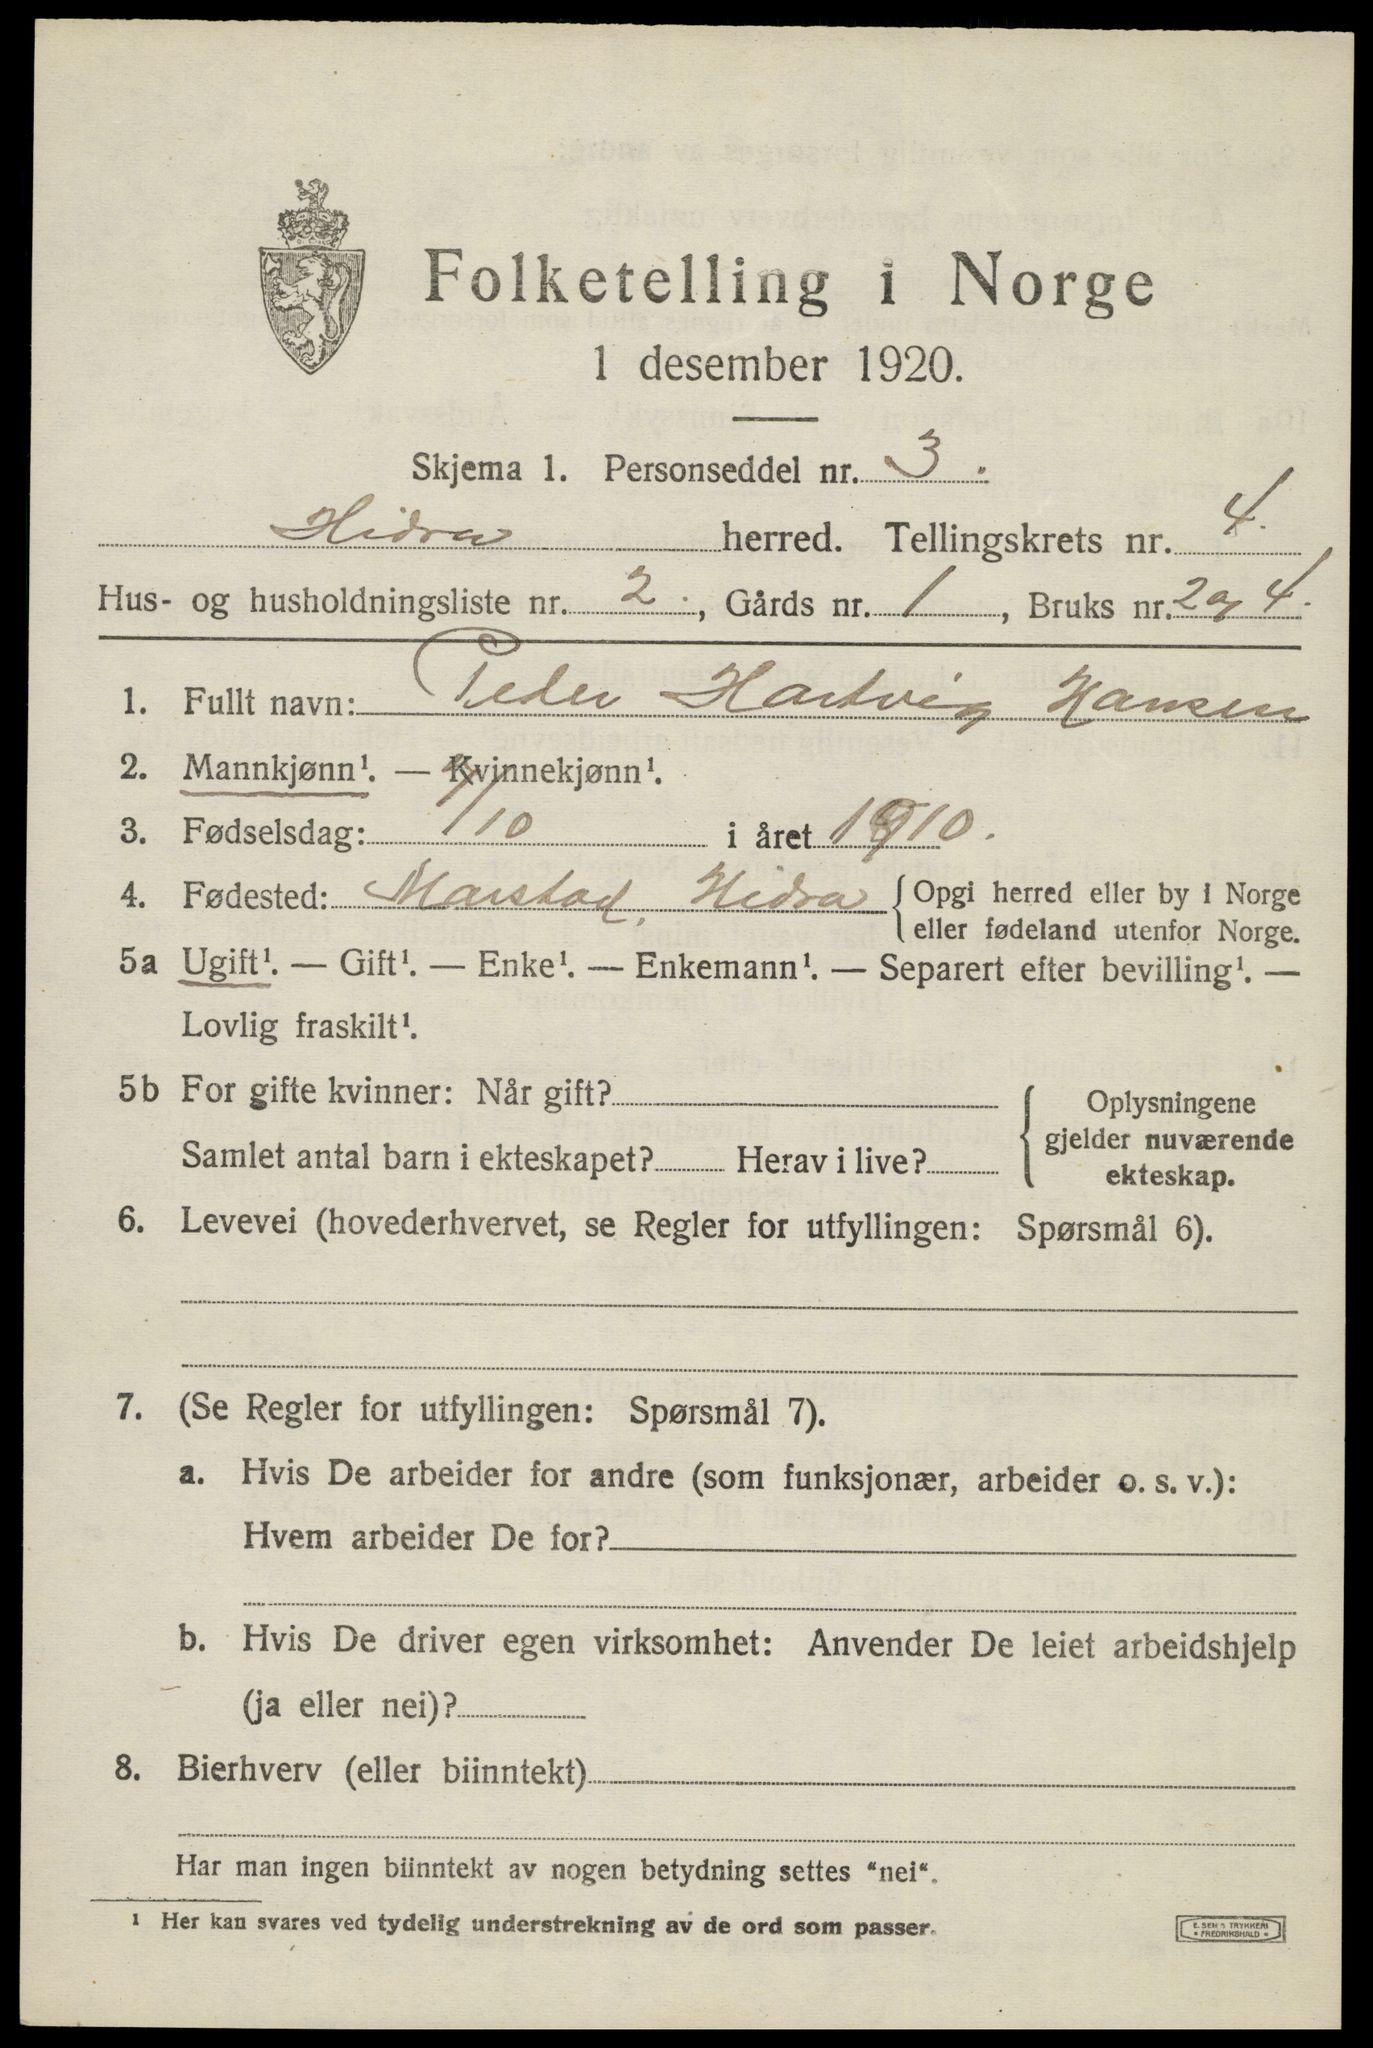 Folketelling i Norge
1 desember 1920.
Skjema 1. Personseddel nr. 3.
Hidra herred. Tellingskrets nr. 4.
Hus- og husholdningsliste nr. 2., Gårds nr. 1, Bruks nr. 2 og 4.
1. Fullt navn: Peder Hartvig Hansen
2. Mannkjønn¹. — Kvinnekjønn¹.
3. Fødselsdag: /10 i året 1910.
4. Fødested: Marstad, Hidra { Opgi herred eller by i Norge
eller fødeland utenfor Norge.
5a Ugift¹. — Gift¹. — Enke¹. — Enkemann¹. — Separert efter bevilling¹. —
Lovlig fraskilt¹.
5b For gifte kvinner: Når gift?
Samlet antal barn i ekteskapet? Herav i live?
{ Oplysningene
gjelder nuværende
ekteskap.
6. Levevei (hovederhvervet, se Regler for utfyllingen: Spørsmål 6).
7. (Se Regler for utfyllingen: Spørsmål 7).
a. Hvis De arbeider for andre (som funksjonær, arbeider o. s. v.):
Hvem arbeider De for?
b. Hvis De driver egen virksomhet: Anvender De leiet arbeidshjelp
(ja eller nei)?
8. Bierhverv (eller biinntekt)
Har man ingen biinntekt av nogen betydning settes "nei".
¹ Her kan svares ved tydelig understrekning av de ord som passer.
E. SEM'S TRYKKERI
* FREDRIKSHALD *